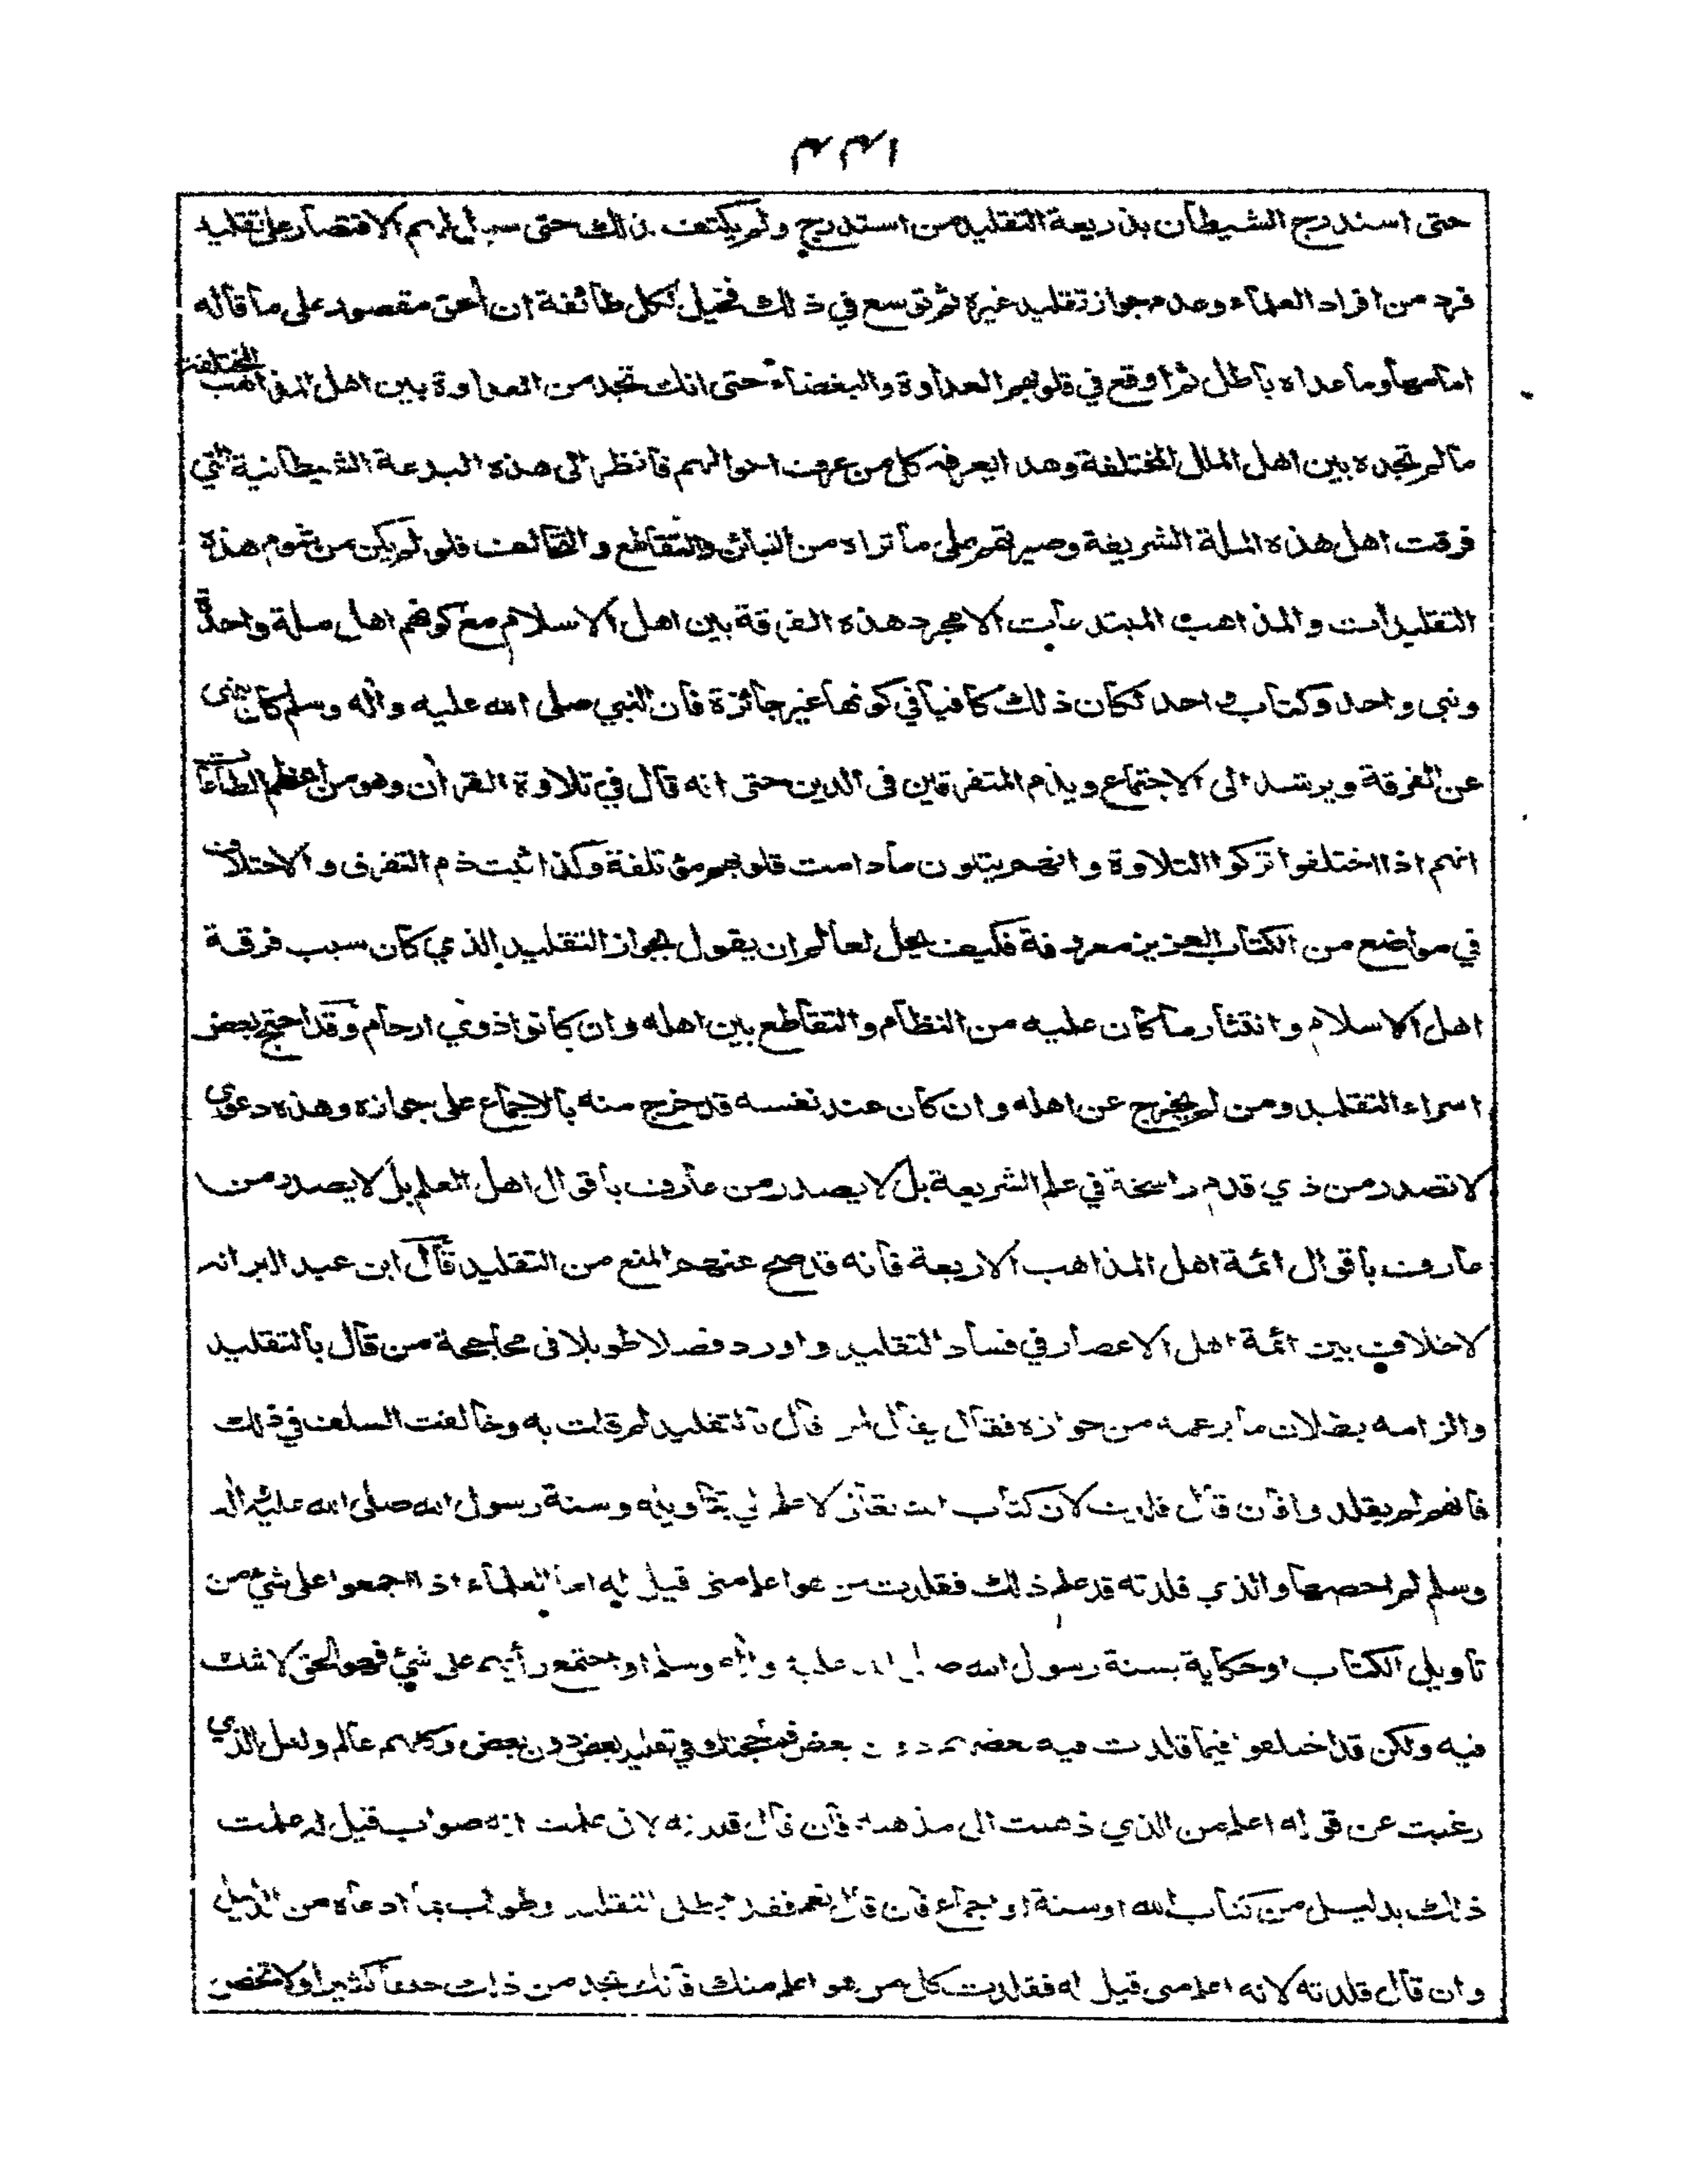 حتى استدرج الشيطان بذريعة التقليد من استدرج ولم يكتف بذلك حتى سول لهم الاقتصار على تقليد
فرد من افراد العلماء وعدم جواز تقليد غيره ثم توسع في ذلك فخيل لكل طائفة ان الحق مقصور على ما قاله
امامها وما عداه باطل ثم اوقع في قلوبهم العداوة والبغضاء حتى انك تجد من العداوة بين اهل المذاهب المختلفة
ما لم تجده بين اهل الملل المختلفة وهذا يعرفه كل من عرف احوالهم فانظر الى هذه البدعة الشيطانية التي
فرقت اهل هذه الملة الشريفة وصيرتهم على ما تراه من التباين والتقاطع والتخالف فلو لم يكن من شوم هذه
التقليدات والمذاهب المبتدعات الا مجرد هذه الفرقة بين اهل الاسلام مع كونهم اهل ملة واحدة
ونبي واحد وكتاب واحد لكان ذلك كافيا في كونها غير جائزة فان النبي صلى الله عليه واله وسلم كان ينهى
عن الفرقة ويرشد الى الاجتماع ويذم المتفرقين فى الدين حتى انه قال في تلاوة القرآن وهو من اعظم الطاعات
انهم اذا اختلفوا تركوا التلاوة وانهم يتلون ما دامت قلوبهم مؤتلفة وكذا ثبت ذم التفرق والاختلاف
في مواضع من الكتاب العزيز معروفة فكيف يحل لعالم ان يقول بجواز التقليد الذي كان سبب فرقة
اهل الاسلام وانتثار ما كان عليه من النظام والتقاطع بين اهله وان كانوا ذوي ارحام وقد احتج بعض
اسراء التقليد ومن لم يخرج عن اهله وان كان عند نفسه قد خرج منه بالاجماع على جوازه وهذه دعوى
لا تصدر من ذي قدم راسخة في علم الشريعة بل لا يصدر من عارف باقوال اهل العلم بل لا يصدر من
عارف باقوال ائمة اهل المذاهب الاربعة فانه قد صح عنهم المنع من التقليد قال ابن عبد البر انه
لا خلاف بين ائمة اهل الاعصار في فساد التقليد واورد فصلا طويلا فى محاججة من قال بالتقليد
والزامه بطلان ما يزعمه من جوازه فقال يقال لمن قال بالتقليد لم قلت به وخالفت السلف في ذلك
فانهم لم يقلدوا فان قال قلدت لان كتاب الله تعالى لا علم لي بتاويله وسنة رسول الله صلى الله عليه واله
وسلم لم احصها والذي قلدته قد علم ذلك فقلدت من هو اعلم مني قيل له اما العلماء اذا اجمعوا على شئ من
تاويل الكتاب او حكاية بسنة رسول الله صلى الله عليه واله وسلم او اجتمع رأيهم على شئ فهو الحق لا شك
فيه ولكن قد اختلفوا فيما قلدت فيه بعضهم دون بعض فما حجتك في تقليد بعض دون بعض وكلهم عالم ولعل الذي
رغبت عن قوله اعلم من الذي ذهبت الى مذهبه فان قال قلدته لاني علمت انه صواب قيل له علمت
ذلك بدليل من كتاب الله او سنة او اجماع فان قال نعم فقد ابطل التقليد وطولب بما ادعاه من الدليل
وان قال قلدته لانه اعلم مني قيل له فقلدت كل من هو اعلم منك فانك تجد من ذلك خلقا كثيرا ولا تخص